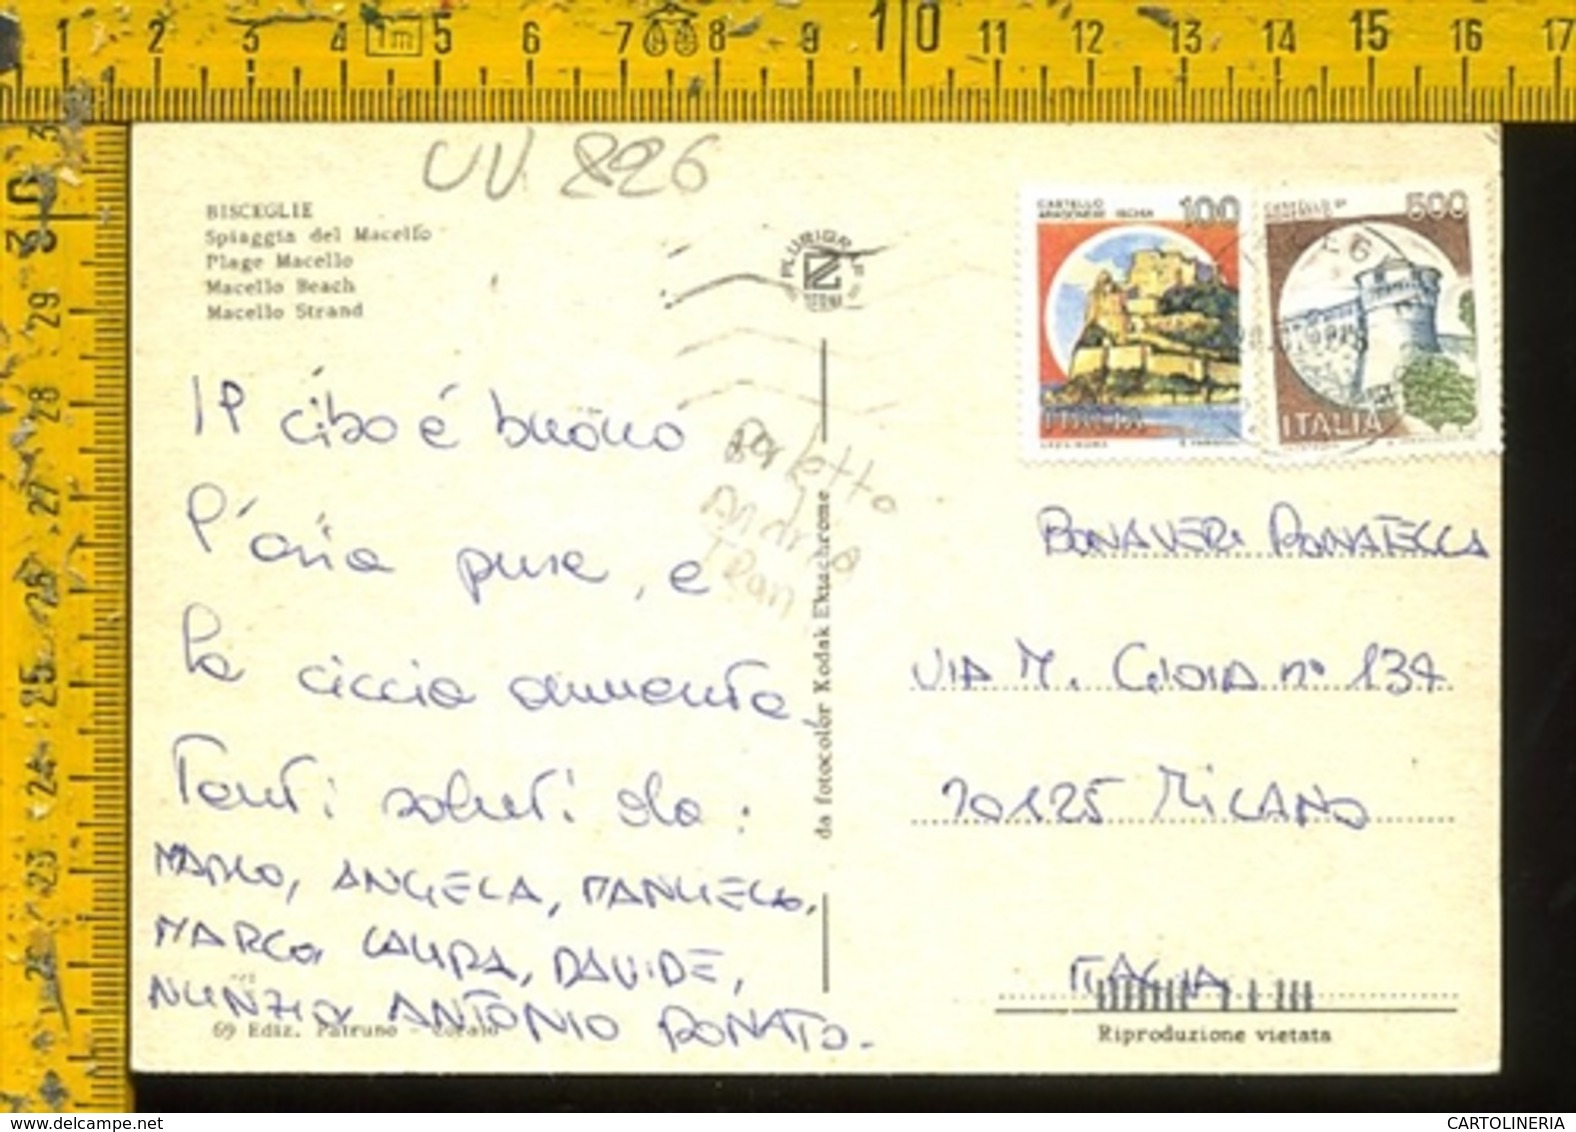 1 2 3 4 1m 5 6 7 8 9 10 11 12 13 14 15 16 17
30 29 28 27 26 25 24 23
UV 826
BISCEGLIE
Spiaggia del Macello
Plage Macello
Macello Beach
Macello Strand
PLURIGRAF
TERNI
CASTELLO ARAGONESE ISCHIA 100
CASTELLO DI 500
ITALIA
ITALIA
Il cibo é buono
l'aria pure, e
la ciccia aumenta,
Tanti saluti da:
MARIO, ANGELA, MANUELA,
MARCO, LAURA, DAVIDE,
NUNZIA ANTONIO DONATO.
69 Ediz. Patruno - Corato
Barletto
Andria
Tran
da fotocolor Kodak Ektachrome
BONAVERI DONATELLA
VIA M. GIOIA n° 137
20125 MILANO
ITALIA
Riproduzione vietata
CARTOLINERIA